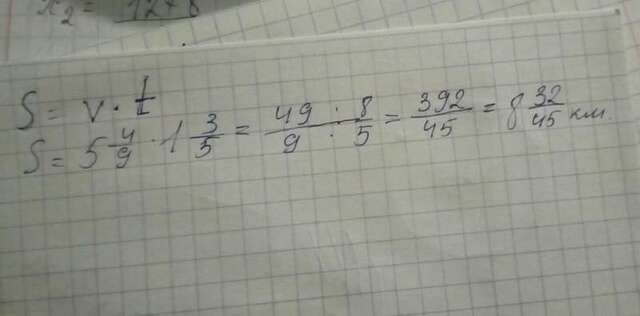 x₂ = 12+8
S = v · t
S = 5 4/9 · 1 3/5 = 49 · 8 / 9 · 5 = 392/45 = 8 32/45 км